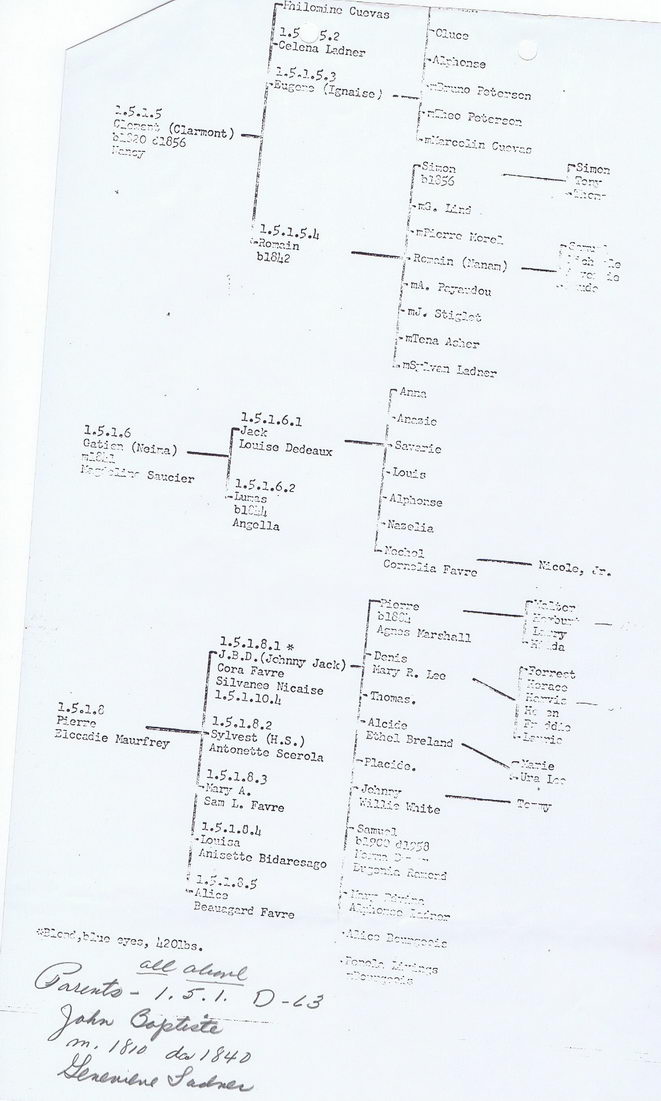 Philomine Cuevas
1.5 5.2
Celena Ladner
1.5.1.5.3
Eugene (Ignaise)
Cluce
Alphonse
mBruno Peterson
mTheo Peterson
mMarcelin Cuevas
1.5.1.5
Clement (Clarmont)
b1820 d1856
Nancy
1.5.1.5.4
Romain
b1842
Simon
b1856
mG. Lind
mPierre Morel
Romain (Nanam)
mA. Poyardou
mJ. Stiglet
mTena Asher
mSylvan Ladner
Simon
Tony
1.5.1.6
Gatien (Neima)
Magdeline Saucier
1.5.1.6.1
Jack
Louise Dedeaux
1.5.1.6.2
Lumas
Angella
Anna
Anasie
Savarie
Louis
Alphonse
Nazelia
Nechol
Cornelia Favre
Nicole, Jr.
1.5.1.8
Pierre
Elccadie Maurfrey
1.5.1.8.1 *
J.B.D.(Johnny Jack)
Cora Favre
Silvanee Nicaise
1.5.1.10.4
1.5.1.8.2
Sylvest (H.S.)
Antonette Scerola
1.5.1.8.3
Mary A.
Sam L. Favre
1.5.1.8.4
Louisa
Anisette Bidaresago
1.5.1.8.5
Alice
Beauagard Favre
Pierre
Agnes Marshall
Denis
Mary R. Lee
Thomas.
Alcide
Ethel Breland
Placide.
Johnny
Willie White
Samuel
b1900 d1958
Eugenia Ramord
Mary Edvina
Alphonse Ladner
Alice Bourgeois
Walter
Herburt
Larry
Forrest
Horace
Marie
Ura Lee
*Blond,blue eyes, 420lbs.
all above
Parents - 1.5.1. D-63
John Baptiste
m. 1810 da 1840
Genevieve Ladner